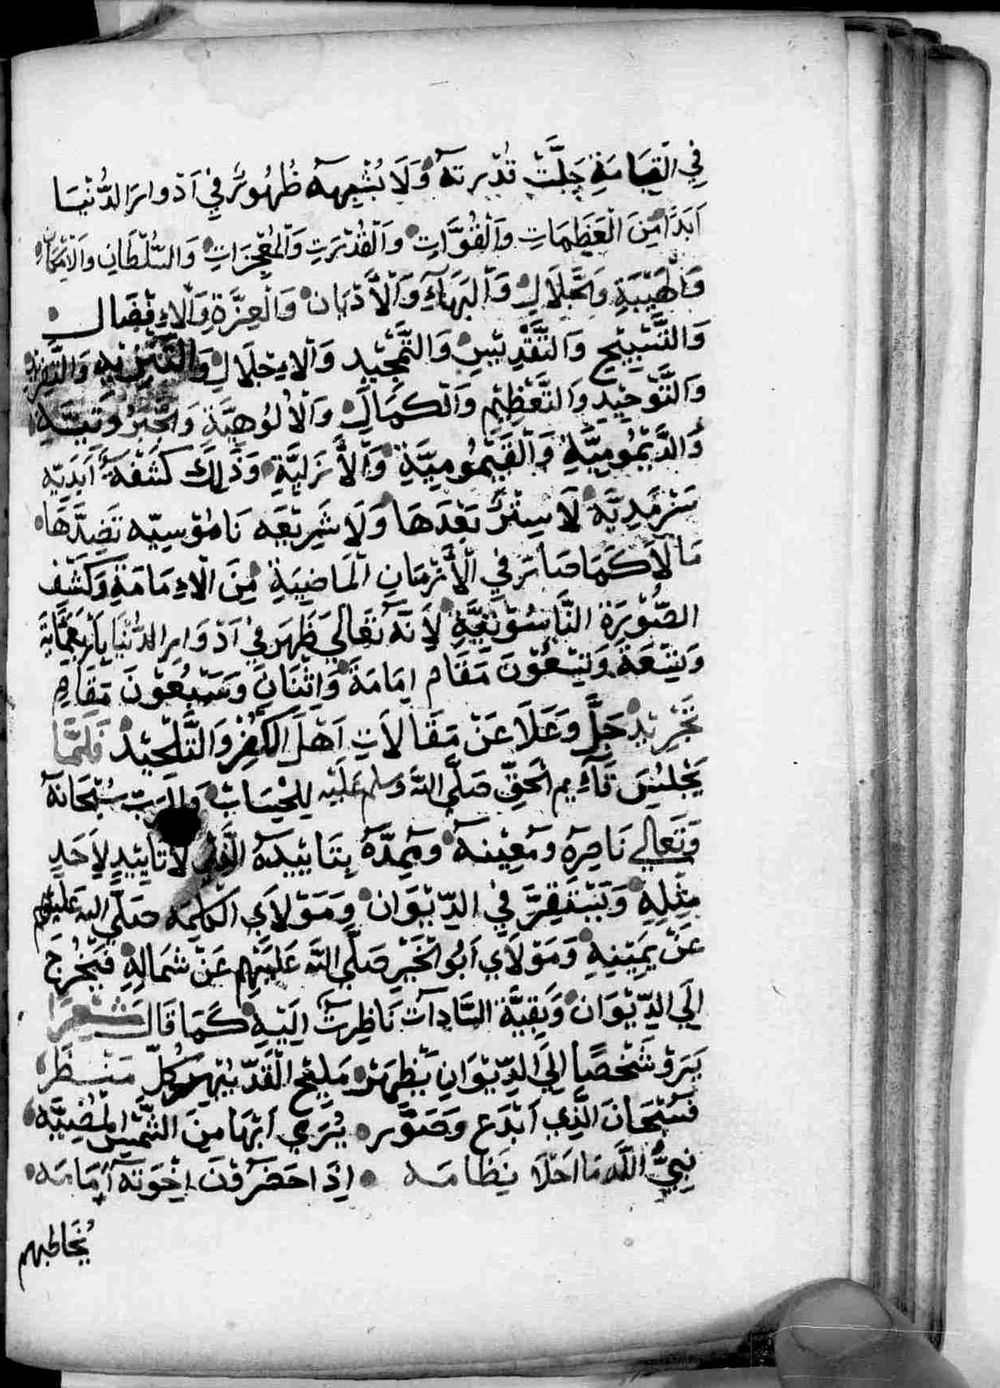 في القيامة جلّت قدرته ولا يشبهه ظهوره في ادوار الدنيا
ابدًا من العظمات والقوات والقدرت والمعجزات والسلطان والامكان
والهيبة والجلال والبهاء والاذهان والعزة والافضال
والتسبيح والتقديس والتمجيد والاجلال والتنزيه والتفريد
والتوحيد والتعظيم والكمال والالوهية والجبروتية
والديمومية والقيمومية والأزلية وذلك كشفة ابديه
سرمدية لا ستر بعدها ولا شريعه ناموسيه تضدها
مالا كما صار في الأزمان الماضية من الامامة وكشف
الصورة الناسوتية لانه تعالى ظهر في ادوار الدنيا باربعماية
وتسعة وتسعون مقام امامة واثنان وسبعون مقام
تجريد جل وعلا عن مقالات اهل الكفر والتلحيد فلما
يجلس قائم الحق صلى الله وسلم عليه للحساب والرب سبحانه
وتعالى ناصره ومعينه ويمده بتاييده الذي لا تاييد لاحد
مثله ويستقر في الديوان ومولاي الكلمه صلى الله عليهم
عن يمينه ومولاي ابو الخير صلى الله عليهم عن شماله فيخرج
الى الديوان وبقية السادات ناظرت اليه كما قال شعرا
يرو شخصا الى الديوان يظهر مليح القد يبهر كل منظر
فسبحان الذي ابدع وصور يرى ابها من الشمس المضيه
نبي الله ما احلا نظامه اذا حضرون اخوته امامه
يخاطبهم